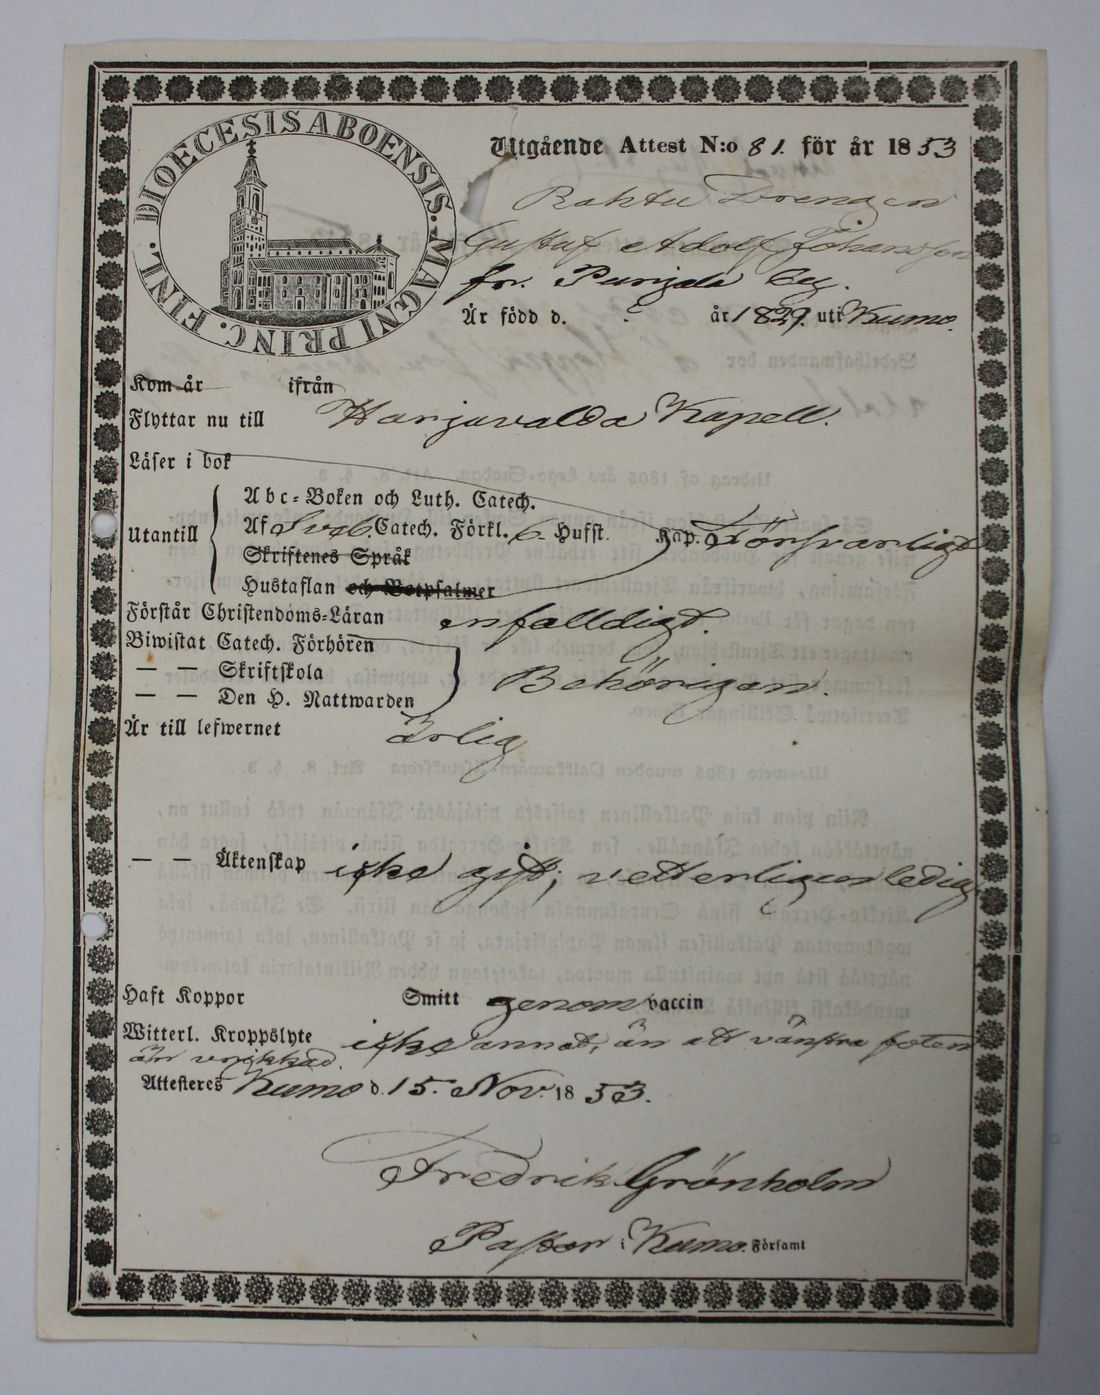 DIOECESIS ABOENSIS. MAGNI PRINC. FINL.
Utgående Attest N:o 81. för år 1853
Drengen
Gustaf Adolf Johansson
fr. Purjala by.
Är född d. år 1829. uti Kumo.
Kom år ifrån
Flyttar nu till Harjavalda Kapell.
Läser i bok
Abc-Boken och Luth. Catech.
Utantill Af Sveb. Catech. Förkl. 6. Hufst. Kap. Försvarligt
Skriftenes Språk
Hustaflan och Botpsalmer
Förstår Christendoms-Läran enfalldigt.
Biwistat Catech. Förhören
— — Skriftskola Behörigen.
— — Den H. Nattwarden
Är till lefwernet Ärlig
— — Äktenskap icke gift, vetterligen ledig
Haft Koppor Smitt genom vaccin
Witterl. Kroppslyte icke annat, än att vänstra foten
är vrickad.
Attesteres Kumo d. 15. Nov. 1853.
Fredrik Grönholm
Pastor i Kumo Församl